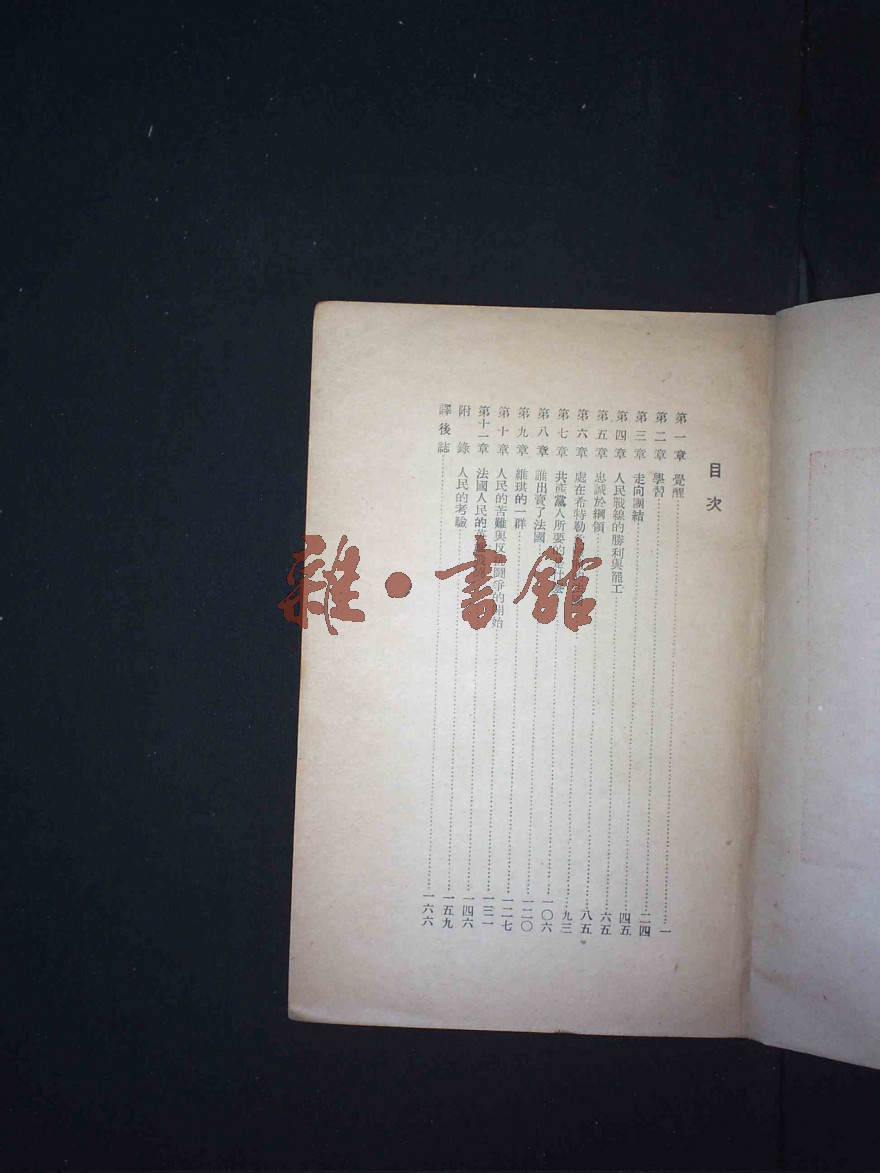 目次
第一章 覺醒 一
第二章 學習 二四
第三章 走向團結 四五
第四章 人民戰線的勝利與罷工 六五
第五章 忠誠於綱領 八五
第六章 處在希特勒 九三
第七章 共產黨人所要的 一〇六
第八章 誰出賣了法國 一二〇
第九章 維琪的一群 一二七
第十章 人民的苦難與反抗鬥爭的開始 一三二
第十一章 法國人民的 一四六
附錄 人民的考驗 一五九
譯後誌 一六六
雜·書館